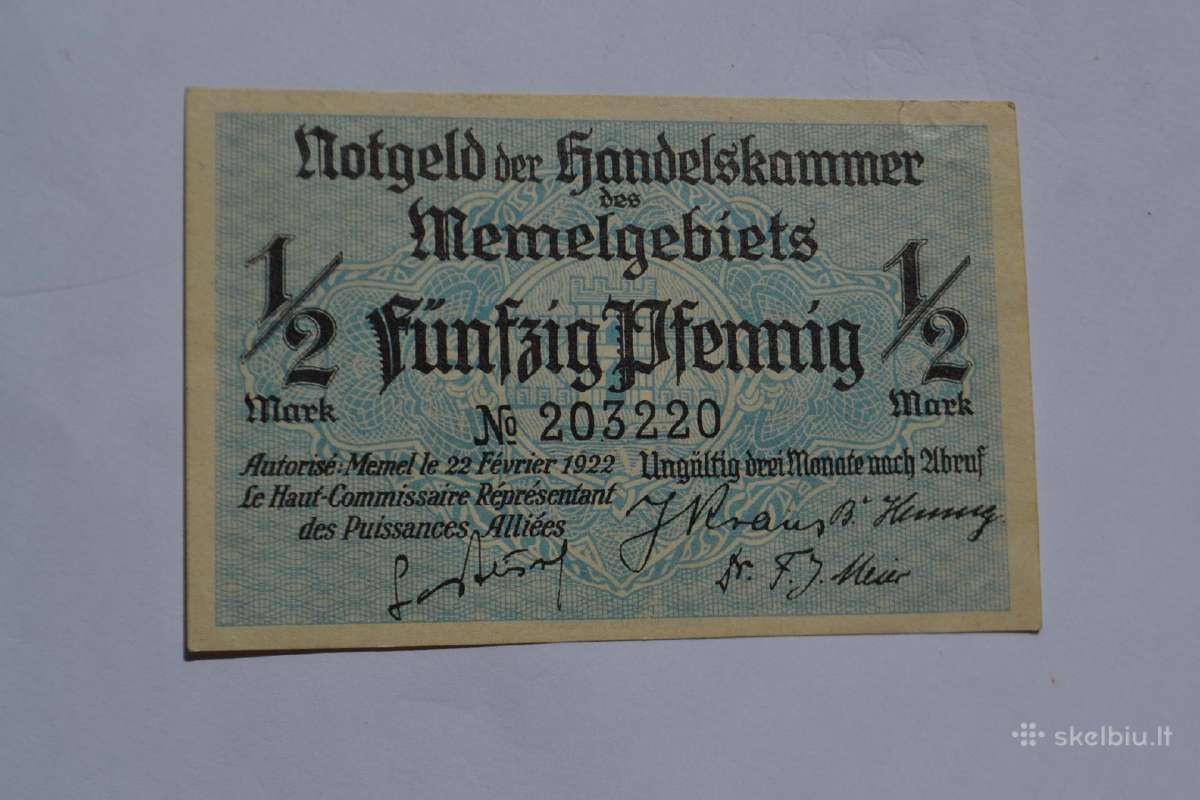 Notgeld der Handelskammer
des
Memelgebiets
1/2 Fünfzig Pfennig 1/2
Mark Mark
No 203220
Autorisé: Memel le 22 Février 1922
Le Haut-Commissaire Réprésentant
des Puissances Alliées
Ungültig drei Monate nach Abruf
J Kraus B. Hennig
Dr. F. J. Meier
skelbiu.lt